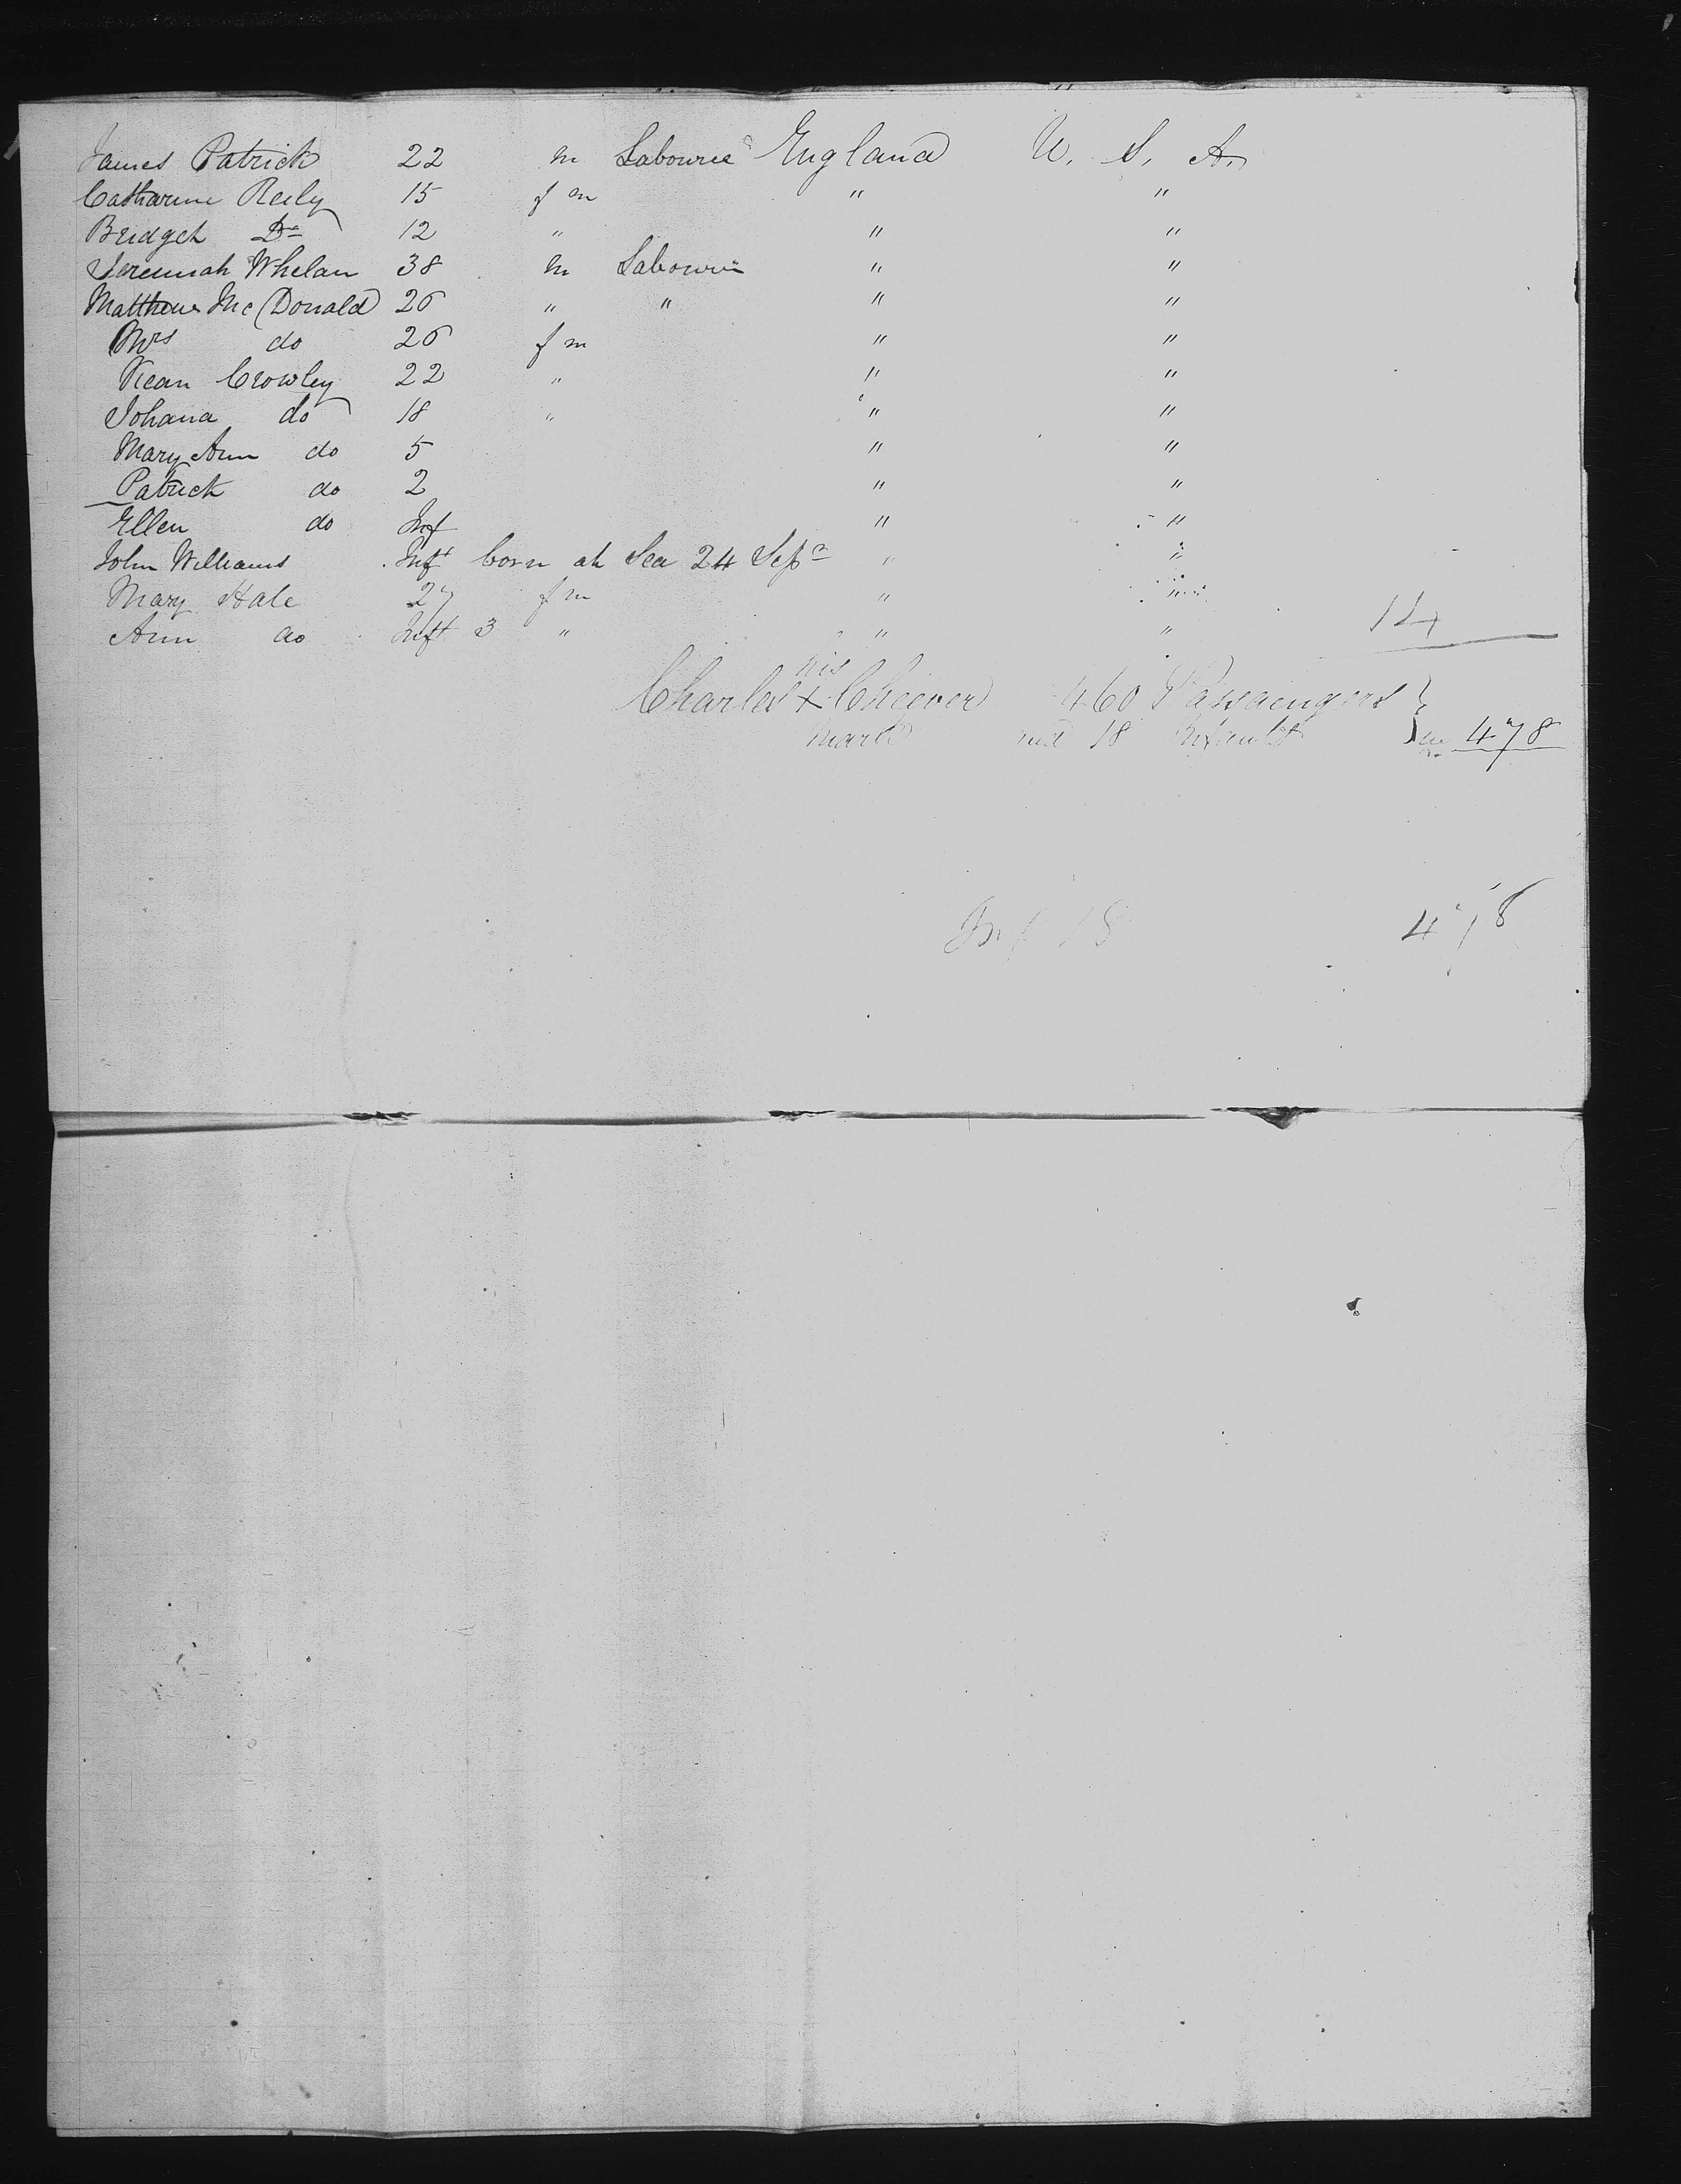 James Patrick 22 m Labourer England U. S. A.
Catharine Reily 15 f m " "
Bridget Do 12 " " "
Jeremiah Whelan 38 m Labourer " "
Matthew Mc Donald 26 " " " "
Mrs do 26 f m " "
Crowley 22 " " "
Johana do 18 " " "
Mary Ann do 5 " "
Patrick do 2 " "
Ellen do Inf " "
John Williams Inft born at Sea 24 Sepr " "
Mary Hale 27 f m " "
Ann do Inft 3 " " " 14
his
Charles X Cheever 460 Passaengers
mark and 18 Infants 478
Inf 18 478